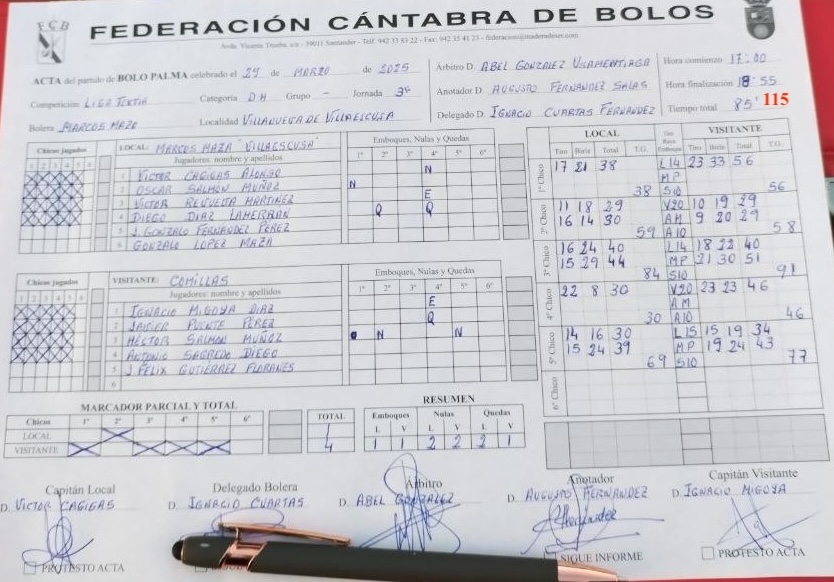 FCB
FEDERACIÓN CÁNTABRA DE BOLOS
ACTA del partido de BOLO PALMA celebrado el 29 de MARZO de 2025
Competición LIGA TEXTIA Categoría DH Grupo - Jornada 3ª
Bolera MARCOS MAZA Localidad VILLANUEVA DE VILLAESCUSA
Arbitro D. ABEL GONZALEZ USAMENTIAGA
Anotador D. AUGUSTO FERNANDEZ SALAS
Delegado D. IGNACIO CUARTAS FERNANDEZ
Hora comienzo 17:00
Hora finalización 18:55
Tiempo total 85' 115
Chicos jugados
1 2 3 4 5 6
LOCAL: MARCOS MAZA VILLAESCUSA
Jugadores: nombre y apellidos
1 VICTOR CAGIGAS ALONSO
2 OSCAR SALMON MUÑOZ
3 VICTOR REVUELTA MARTINEZ
4 DIEGO DIAZ LAHERRAN
5 J. GONZALO FERNANDEZ PEREZ
6 GONZALO LOPEZ MAZA
Emboques, Nulas y Quedas
1º 2º 3º 4º 5º 6º
N
N
E
Q Q
Chicos jugados
1 2 3 4 5 6
VISITANTE: COMILLAS
Jugadores: nombre y apellidos
1 IGNACIO MIGOYA DIAZ
2 JAVIER PUENTE PEREZ
3 HÉCTOR SALMON MUÑOZ
4 ANTONIO SAGREDO DIEGO
5 J. FELIX GUTIERREZ FLORANES
6
Emboques, Nulas y Quedas
1º 2º 3º 4º 5º 6º
E
Q
N N
LOCAL VISITANTE
Tiro Birle Total T.G. Tiro Raya Emboque Tiro Birle Total T.G.
1º Chico 17 21 38 L14 23 33 56
MP
38 S10 56
2º Chico 11 18 29 V20 10 19 29
16 14 30 AM 9 20 29
59 A10 58
3º Chico 16 24 40 L14 18 22 40
15 29 44 MP 21 30 51
84 S10 91
4º Chico 22 8 30 V20 23 23 46
AM
30 A10 46
5º Chico 14 16 30 L15 15 19 34
15 24 39 MP 19 24 43
69 S10 77
6º Chico
MARCADOR PARCIAL Y TOTAL
Chicos 1º 2º 3º 4º 5º 6º
LOCAL
VISITANTE
TOTAL
1
4
RESUMEN
Emboques Nulas Quedas
L V L V L V
1 1 2 2 2 1
Capitán Local
D. VICTOR CAGIGAS
PROTESTO ACTA
Delegado Bolera
D. IGNACIO CUARTAS
Arbitro
D. ABEL GONZALEZ
Anotador
D. AUGUSTO FERNANDEZ
SIGUE INFORME
Capitán Visitante
D. IGNACIO MIGOYA
PROTESTO ACTA